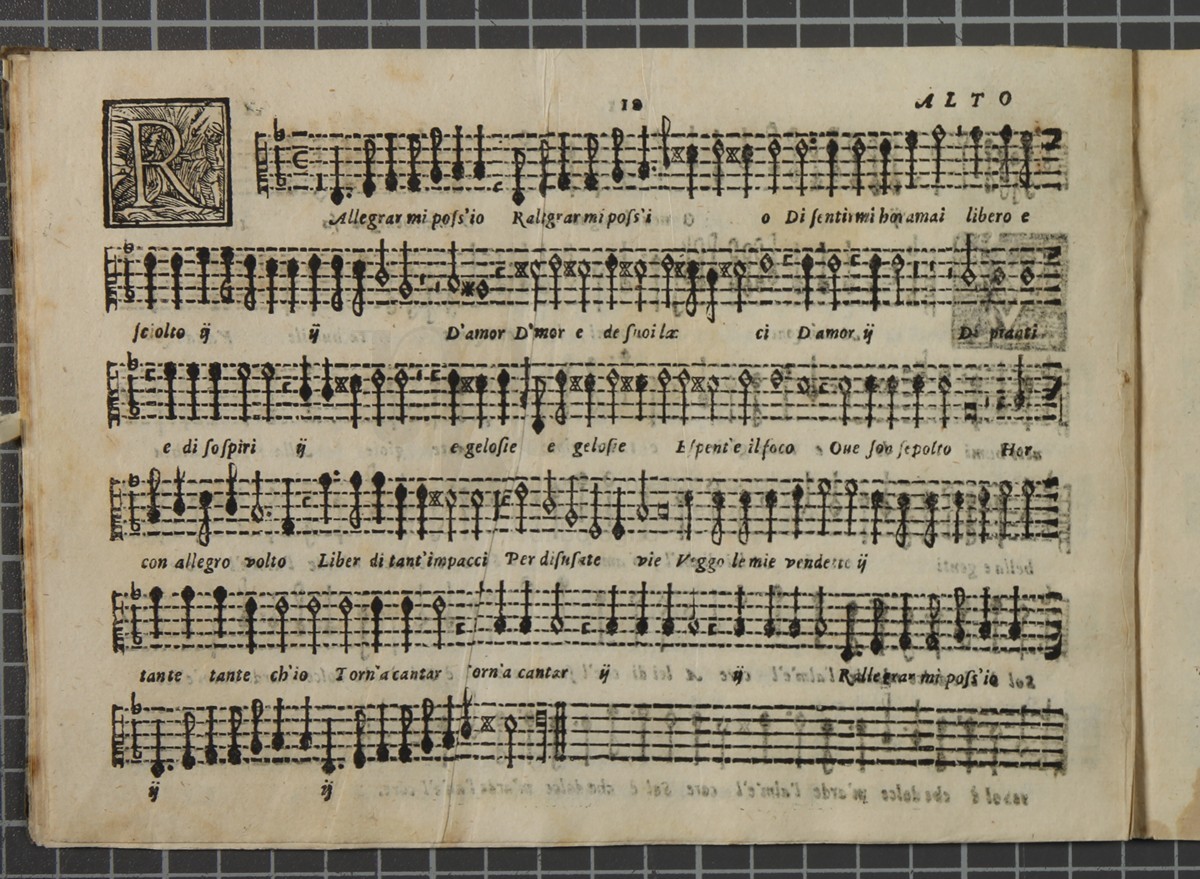 12
ALTO
R
Allegrar mi poſs'io Rallgrar mi poſs'i o Di ſentir mi horamai libero e
ſciolto ij ij D'amor D'mor e de ſuoi lac ci D'amor ij Di pianti
e di ſoſpiri ij e geloſie e geloſie E ſpent'e il foco Oue ſon ſepolto Hor
con allegro volto Liber di tant'impacci Per diſuſate vie Veggo le mie vendette ij
tante tante ch'io Torn'a cantar orn'a cantar ij ij Rallegrar mi poſs'io
ij ij